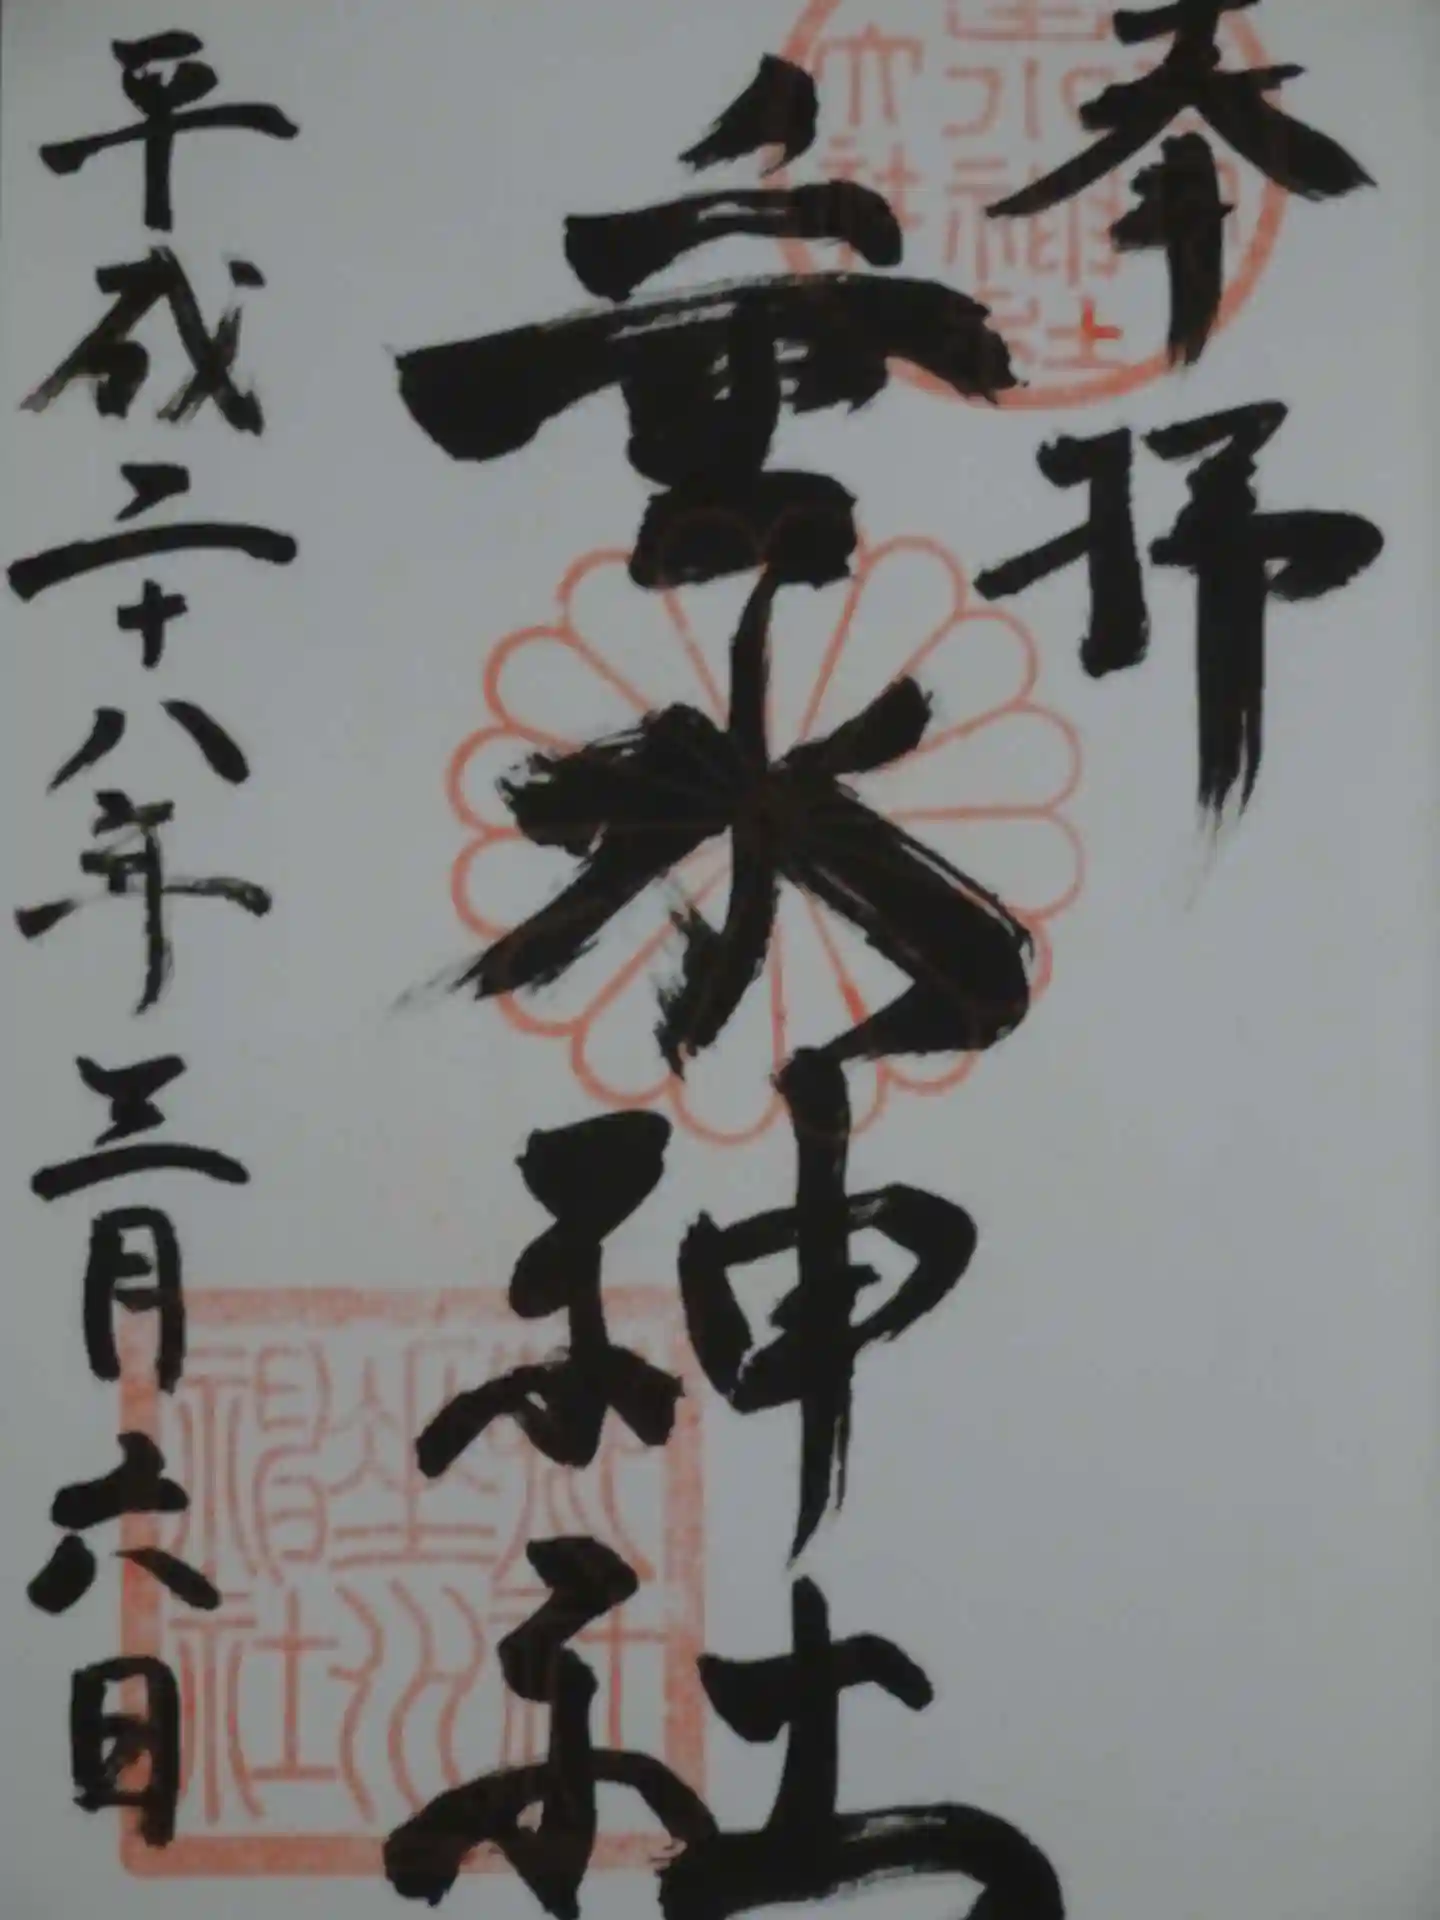 奉拝
垂水神社
平成二十八年三月六日